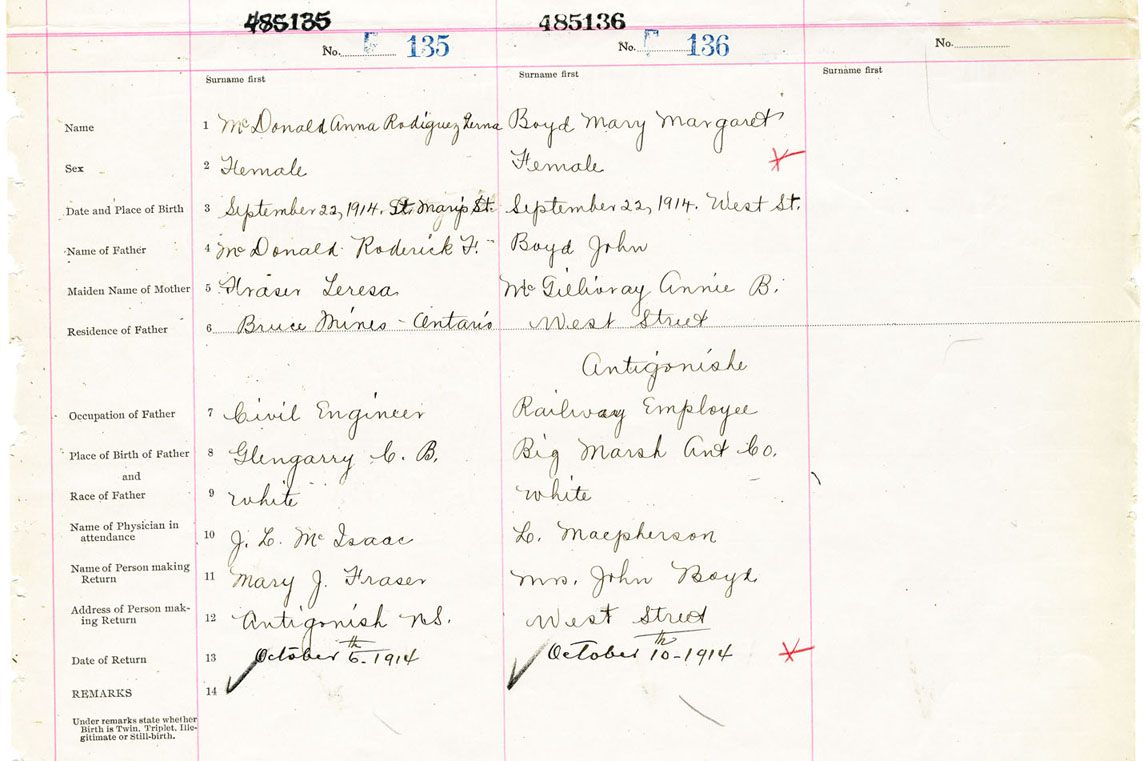 485135 485136
No. F 135 No. F 136 No.
Surname first Surname first Surname first
Name 1 McDonald Anna Rodiguez Boyd Mary Margaret
Sex 2 Female Female
Date and Place of Birth 3 September 22, 1914. St. St. September 22, 1914. West St.
Name of Father 4 McDonald Roderick F. Boyd John
Maiden Name of Mother 5 Fraser Teresa McGillivray Annie B.
Residence of Father 6 Bruce Mines - Ontario West Street
Antigonishe
Occupation of Father 7 Civil Engineer Railway Employee
Place of Birth of Father 8 Glengarry C. B. Big Marsh Ant Co.
and
Race of Father 9 White White
Name of Physician in
attendance 10 J. L. McIsaac L. Macpherson
Name of Person making
Return 11 Mary J. Fraser Mrs. John Boyd
Address of Person mak-
ing Return 12 Antigonish N.S. West Street
Date of Return 13 October 6th - 1914 October 10th - 1914
REMARKS 14
Under remarks state whether
Birth is Twin, Triplet, Ille-
gitimate or Still-birth.